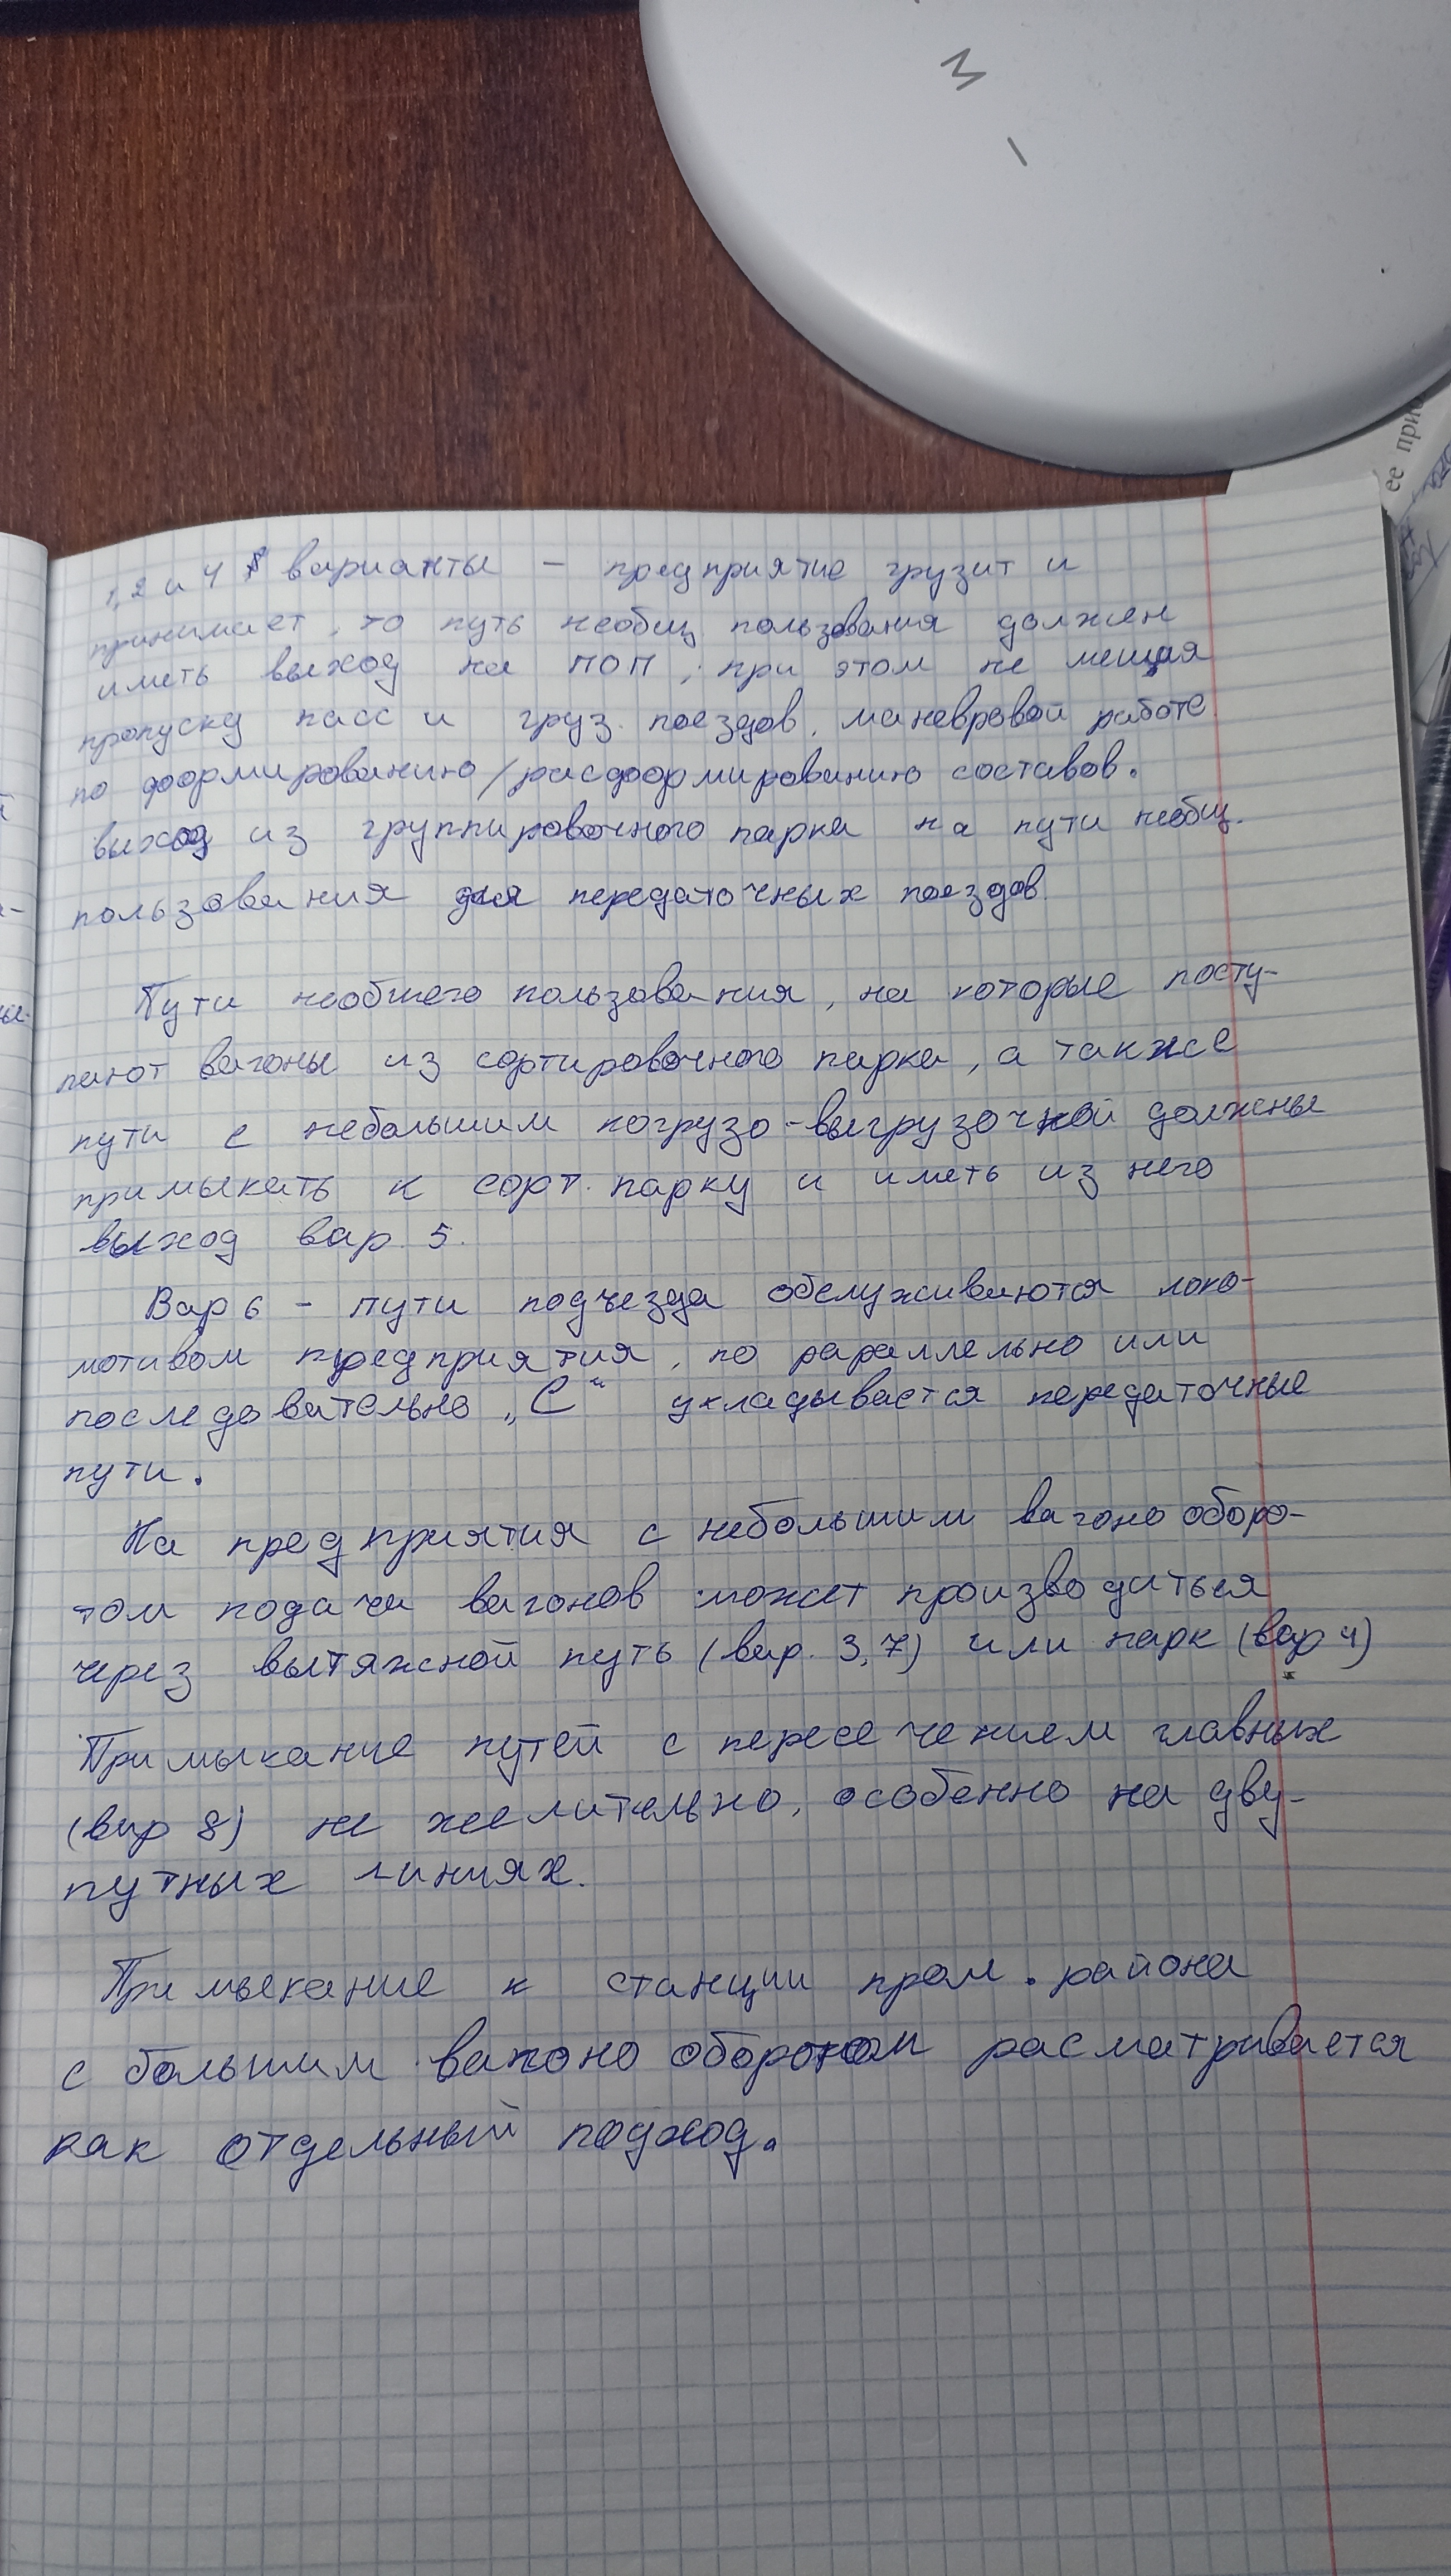 1,2 и 4 варианты – предприятие грузит и
принимает, то путь необщ пользования должен
иметь выход на ПОП, при этом не мешая
пропуску пасс и груз. поездов, маневровой работе
по формированию/расформированию составов.
выход из группировочного парка на пути необщ.
пользования для передаточных поездов.
Пути необшего пользования, на которые посту-
пают вагоны из сортировочного парка, а также
пути с небольшим погрузо-выгрузочной должны
примыкать к сорт. парку и иметь из него
выход вар. 5.
Вар 6 – пути подъезда обслуживаются локо-
мотивом предприятия, по параллельно или
последовательно „С“ укладывается передаточные
пути.
На предприятия с небольшим вагонооборо-
том подачи вагонов может производиться
через вытяжной путь (вар. 3,7) или парк (вар 4)
Примыкание путей с пересечением главных
(вар 8) не желительно, особенно на дву-
путных линиях.
Примыкание к станции пром. района
с большим вагоно оборотом расматривается
как отдельный подход.
ее при